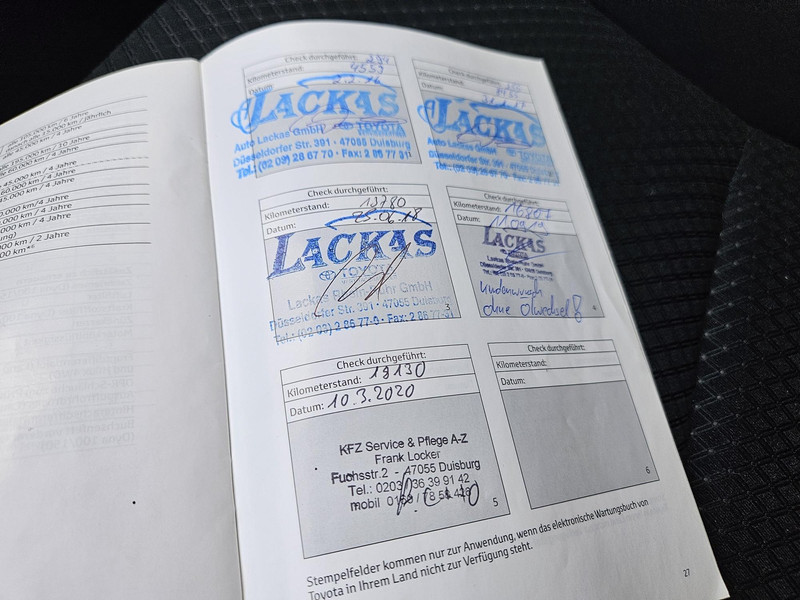 alle 105.000 km / 6 Jahre
alle 45.000 km / jährlich
alle 45.000 km / 4 Jahre
alle 165.000 km / 10 Jahre
60.000 km / 4 Jahre
45.000 km / 4 Jahre
60.000 km / 4 Jahre
45.000 km / 4 Jahre
000 km/4 Jahre
000 km / 4 Jahre
000 km / 4 Jahre
000 km / 2 Jahre
Check durchgeführt:
Kilometerstand: 4553
Datum: 2.2.16
LACKAS
TOYOTA
Auto Lackas GmbH
Düsseldorfer Str. 391 · 47055 Duisburg
Tel.: (02 03) 2 86 77 0 · Fax: 2 86 77 31
Check durchgeführt:
Kilometerstand:
Datum:
LACKAS
Auto Lackas GmbH
Düsseldorfer Str. 391
Check durchgeführt:
Kilometerstand: 13780
Datum: 25.06.18
LACKAS
TOYOTA
Lackas Rhein-Ruhr GmbH
Düsseldorfer Str. 391 · 47055 Duisburg
Tel.: (02 03) 2 86 77-0 · Fax: 2 86 77-31
3
Check durchgeführt:
Kilometerstand: 16807
Datum: 11.09.19
LACKAS
TOYOTA
Kundenwunsch
ohne Ölwechsel!
4
Check durchgeführt:
Kilometerstand: 19130
Datum: 10.3.2020
KFZ Service & Pflege A-Z
Frank Locker
Fuchsstr.2 - 47055 Duisburg
Tel.: 0203 36 39 91 42
mobil
5
Check durchgeführt:
Kilometerstand:
Datum:
6
Stempelfelder kommen nur zur Anwendung, wenn das elektronische Wartungsbuch von
Toyota in Ihrem Land nicht zur Verfügung steht.
27